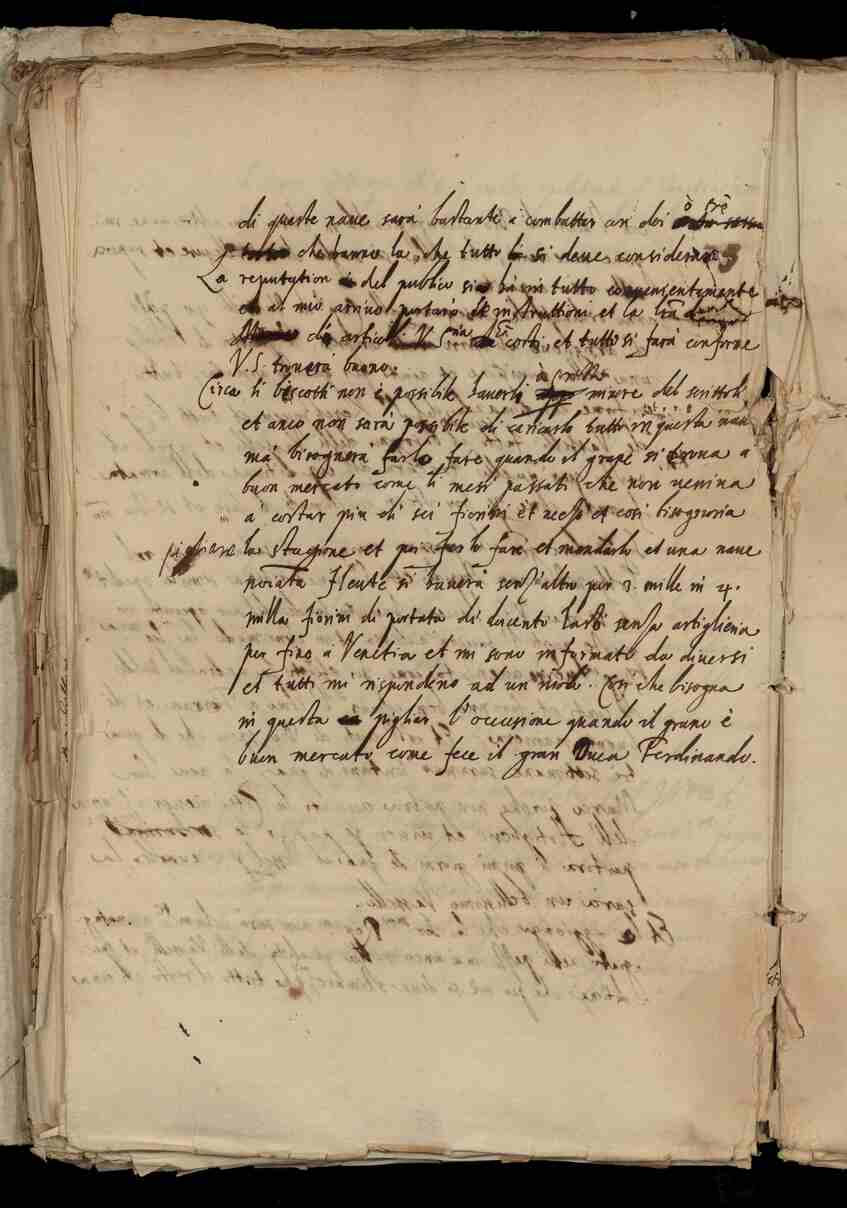 di queste nave sarà bastante à combatter con doi ò trè
che hanno la, che tutto si deve considerar
La reputation del publico sia in tutto
et al mio arrivo portarò le instruttioni et la
di articoli V.S. corti, et tutto si farà conforme
V.S. trovera buono.
Circa li biscotti non è possibile haverli à minore del scrittoli
et anco non sarà possibile di caricarlo tutto in questa nave
mà bisognerà farlo fare quando il grane si trova a
buon mercato come li mesi passati che non veniva
à costar piu di sei fiorini et cosi bisogniria
pigliare la stagione et poi farlo fare et mandarlo et una nave
si haverà senz'altro per 3. mille in 4.
milla fiorini di portata di ducento lasti senza artiglieria
per fino a Venetia et mi sono informato da diversi
et tutti mi rispondeno ad un modo. Cosi che bisogna
in questa pigliar l'occasione quando il grano è
buon mercato come fece il gran Duca Ferdinando.